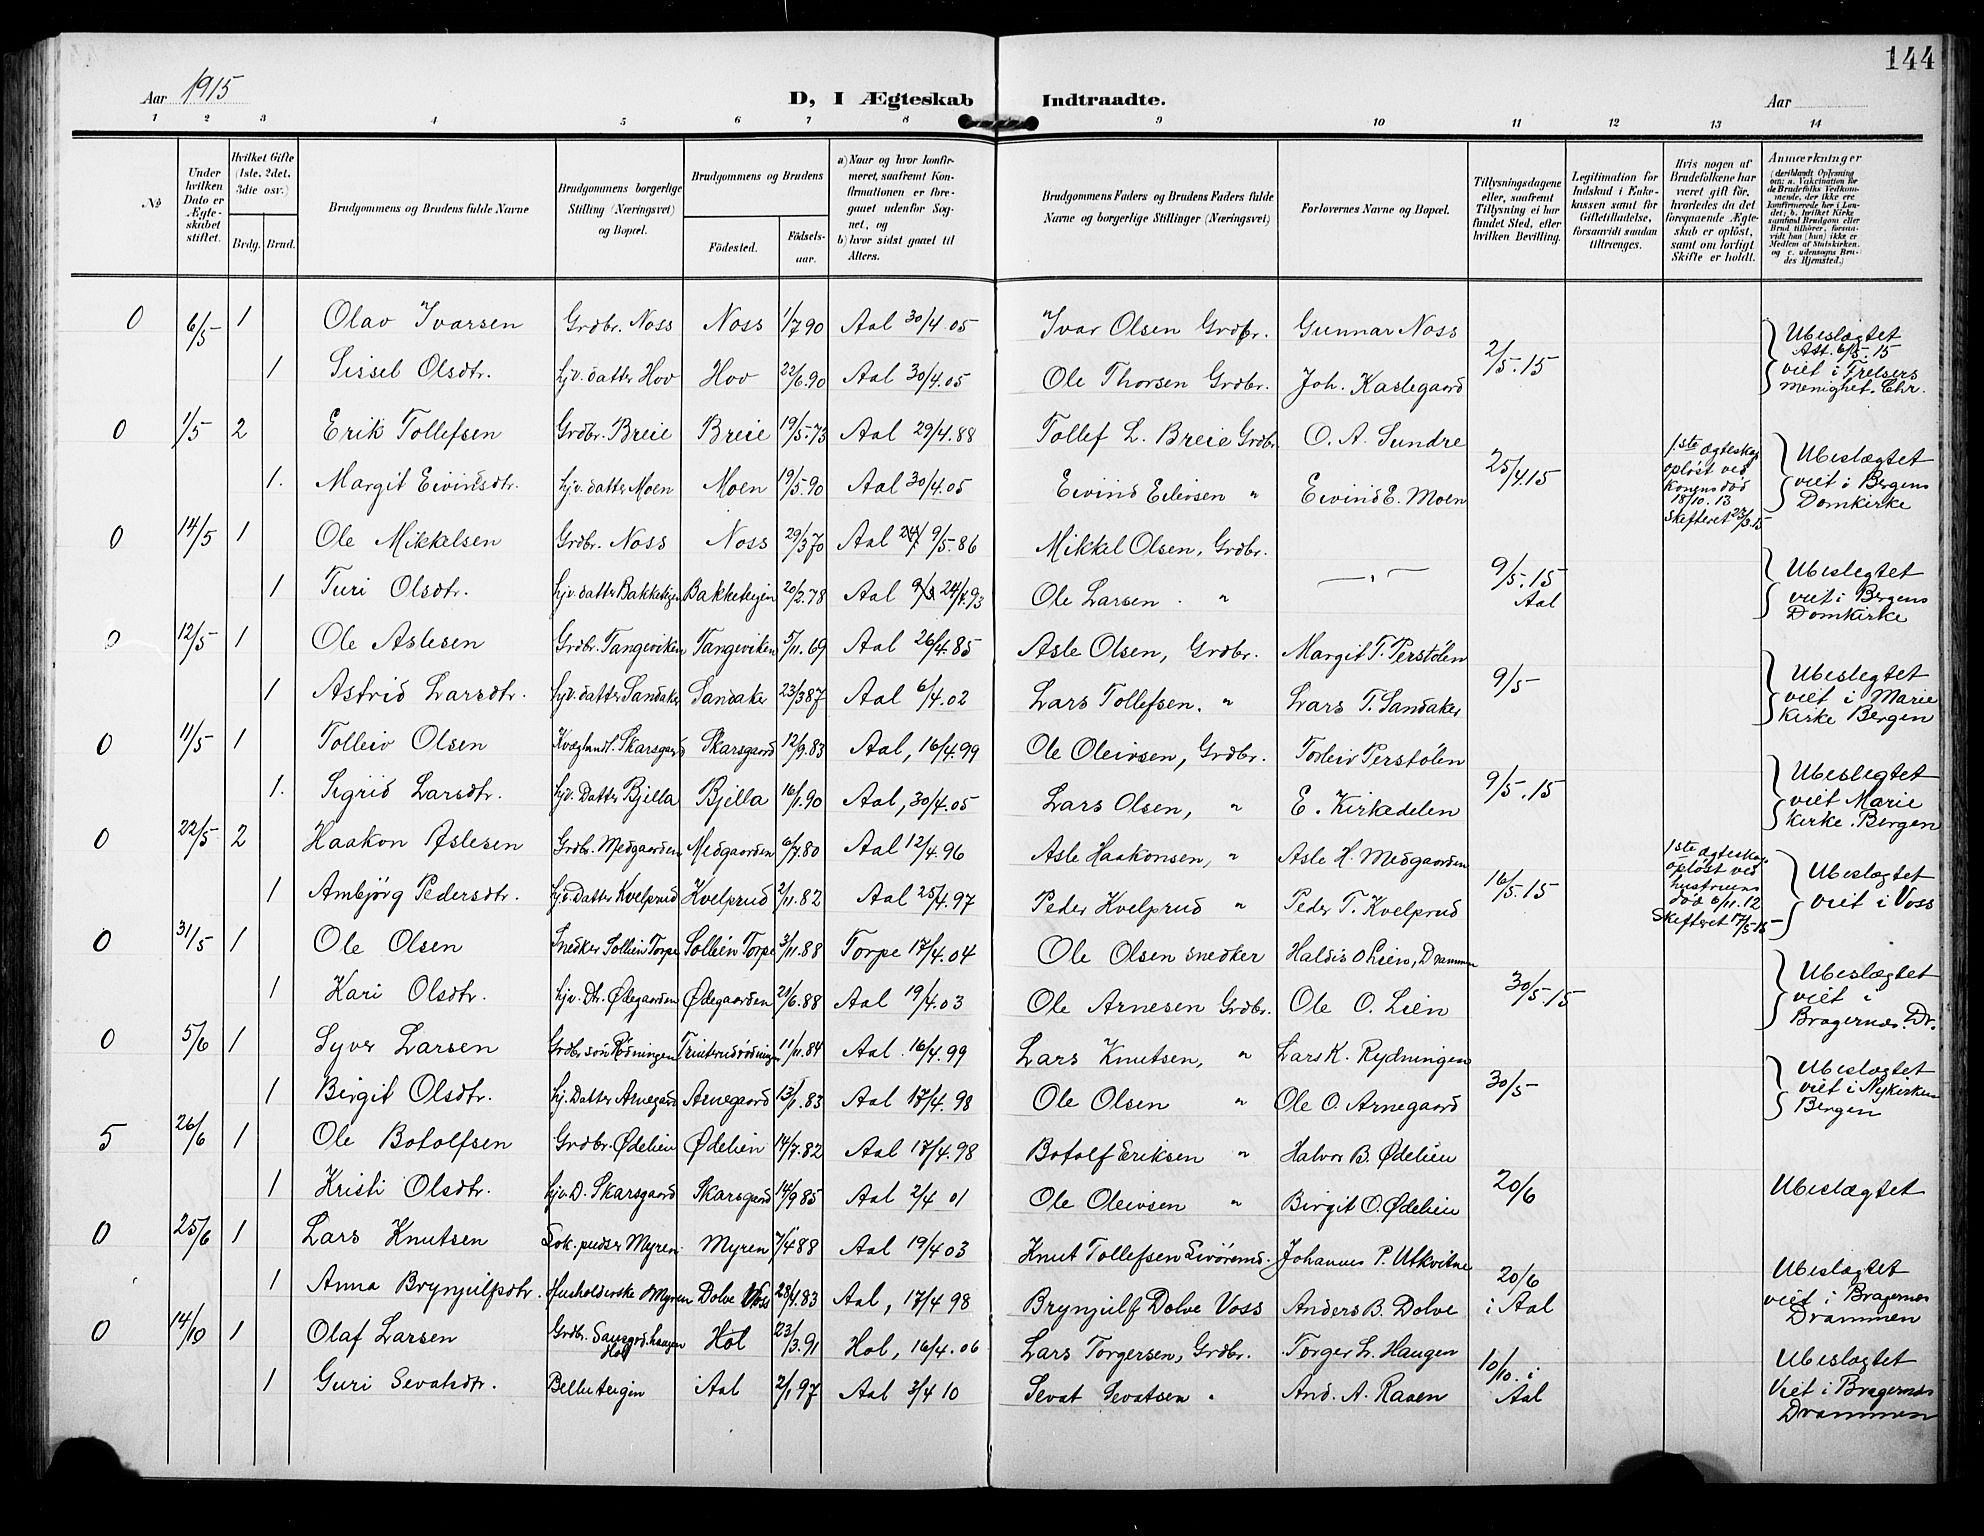 144
Aar 1915
D, I Ægteskab Indtraadte.
Aar
1 2 3 4 5 6 7 8 9 10 11 12 13 14
№
Under hvilken Dato er Ægteskabet stiftet.
Hvilket Gifte (1ste, 2det, 3die osv.)
Brdg. Brud.
Brudgommens og Brudens fulde Navne
Brudgommens borgerlige Stilling (Næringsvei) og Bopæl.
Brudgommens og Brudens
Fødested. Fødselsaar.
a) Naar og hvor konfirmeret, saafremt Konfirmationen er foregaaet udenfor Sognet, og
b) hvor sidst gaaet til Alters.
Brudgommens Faders og Brudens Faders fulde Navne og borgerlige Stillinger (Næringsvei)
Forlovernes Navne og Bopæl.
Tillysningsdagene eller, saafremt Tillysning ei har fundet Sted, efter hvilken Bevilling.
Legitimation for Indskud i Enkekassen samt for Giftetilladelse, forsaavidt saadan tiltrænges.
Hvis nogen af Brudefolkene har været gift før, hvorledes da det foregaaende Ægteskab er opløst, samt om lovligt Skifte er holdt.
Anmærkninger (deriblandt Oplysning om: a. Vakcination for de Brudefolks Vedkommende, der ikke ere konfirmerede her i Landet; b. hvilket Kirkesamfund Brudgom eller Brud tilhører, forsaavidt han (hun) ikke er Medlem af Statskirken, og c. udensogns Brudes Hjemsted.)
0 6/5 1 Olav Ivarsen Grdbr. Noss Noss 1/7 90 Aal 30/4.05 Ivar Olsen Grdbr. Gunnar Noss 2/5.15 Ubeslægtet Att. 6/5.15 viet i Frelsers menighet. Chr.
1 Sissel Olsdtr. hjv. datter Hov Hov 22/6.90 Aal 30/4.05 Ole Thorsen Grdbr. Joh. Kaslegaard
0 1/5 2 Erik Tollefsen Grdbr. Breie Breie 19/5.73 Aal 29/4.88 Tollef L. Breie Grdbr. O. A. Sundre 25/4.15 1.ste ægteskap opløst ved konens død 18/10.13 Skifteret 23/3.15 Ubeslægtet viet i Bergens Domkirke
1. Margit Eivindsdtr. hjv. datter Moen Moen 19/5.90 Aal 30/4.05 Eivind Eilevsen " Eivind E. Moen
0 14/5 1 Ole Mikkelsen Grdbr. Noss Noss 29/3 70 Aal 9/5.86 Mikkel Olsen, Grdbr. 9/5.15 Aal Ubeslegtet viet i Bergens Domkirke
1 Turi Olsdtr. hjv. datter Bakketeigen Bakketeigen 20/2.78 Aal 24/8.93 Ole Larsen "
0 12/5 1 Ole Aslesen Grdbr. Tangeviken Tangeviken 5/11.69 Aal 26/4.85 Asle Olsen, Grdbr. Margit T. Perstølen 9/5 Ubeslegtet viet i Marie kirke Bergen
1 Astrid Larsdtr. hjv. datter Sandaker Sandaker 23/3 87 Aal 6/4.02 Lars Tollefsen. " Lars T. Sandaker
0 11/5 1 Tolleiv Olsen Kvæghandl. Skarsgaard Skarsgaard 12/9.83 Aal, 16/4.99 Ole Oleivsen, Grdbr. Torleiv Perstølen 9/5.15 Ubeslegtet viet Marie kirke. Bergen
1. Sigrid Larsdtr. hjv. Datter Bjella Bjella 16/1.90 Aal, 30/4.05 Lars Olsen, " E. Kirkedelen
0 22/5 2 Haakon Aslesen Grdbr. Medgaarden Medgaarden 6/7.80 Aal 12/4.96 Asle Haakonsen, " Asle H. Medgaarden 16/5.15 1ste ægteskap opløst ved hustruens død 6/11.12 Skifteret 17/5.15 Ubeslægtet viet i Voss
1 Ambjörg Pedersdtr. hjv. Datter Kvelprud Kvelprud 2/11.82 Aal 25/4.97 Peder Kvelprud " Peder T. Kvelprud
0 31/5 1 Ole Olsen Snedker Sollien Torpe Sollien Torpe 3/11.88 Torpe 17/4.04 Ole Olsen snedker Haldis O Lien, Drammen 30/5.15 Ubeslægtet viet i Bragernæs. Dr.
1 Kari Olsdtr. hjv. Dtr. Ødegaarden Ødegaarden 21/6.88 Aal 19/4.03 Ole Arnesen Grdbr. Ole O. Lien
0 5/6 1 Syver Larsen Grdbr søn Rødningen 11/11.84 Aal. 16/4.99 Lars Knutsen, " Lars K. Rydningen 30/5 Ubeslægtet viet i Nykirken Bergen
1 Birgit Olsdtr. hj. Datter Arnegaard Arnegaard 13/1.83 Aal 17/4.98 Ole Olsen " Ole O. Arnegaard
5 26/6 1 Ole Botolfsen Grdbr. Ødelien Ødelien 14/7.82 Aal 17/4.98 Botolf Eriksen " Halvor B. Ødelien 20/6 Ubeslægtet
1 Kristi Olsdtr. hjv. D. Skarsgaard Skarsgaard 14/9 85 Aal 2/4 01 Ole Oleivsen " Birgit O. Ødelien
0 25/6 1 Lars Knutsen Lok. pudser Myren Myren 7/4 88 Aal 19/4 03 Knut Tollefsen Johannes P. Utkvitne 20/6 i Aal Ubeslægtet viet i Bragernes Drammen
1 Anna Brynjulfsdtr. Husholderske Myren Dolve Voss 28/1.83 Aal, 17/4 98 Brynjulf Dolve Voss Anders B. Dolve
0 14/10 1 Olaf Larsen Grdbr. Hol Hol 23/3.91 Hol, 16/4.06 Lars Torgersen, Grdbr. Torger L. Haugen 10/10. i Aal Ubeslægtet Viet i Bragernæs Drammen
1 Guri Sevatsdtr. Aal 2/1 97 Aal 3/4 10 Sevat Sevatsen " And. A. Raaen